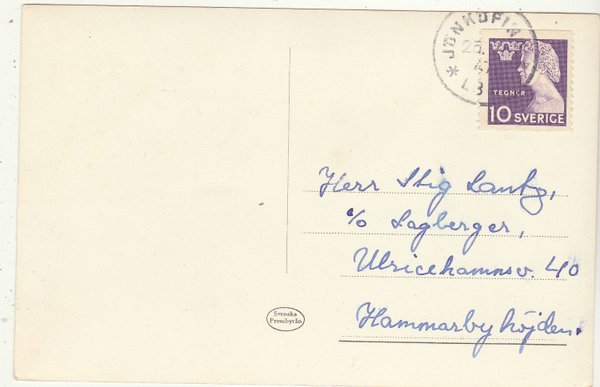 * JÖNKÖPIN
25.
47
LB
TEGNÉR
10 SVERIGE
Herr Stig Lanby,
c/o Lagberger,
Ulricehamnsv. 40
Hammarbyhöjden.
Svenska
Pressbyrån